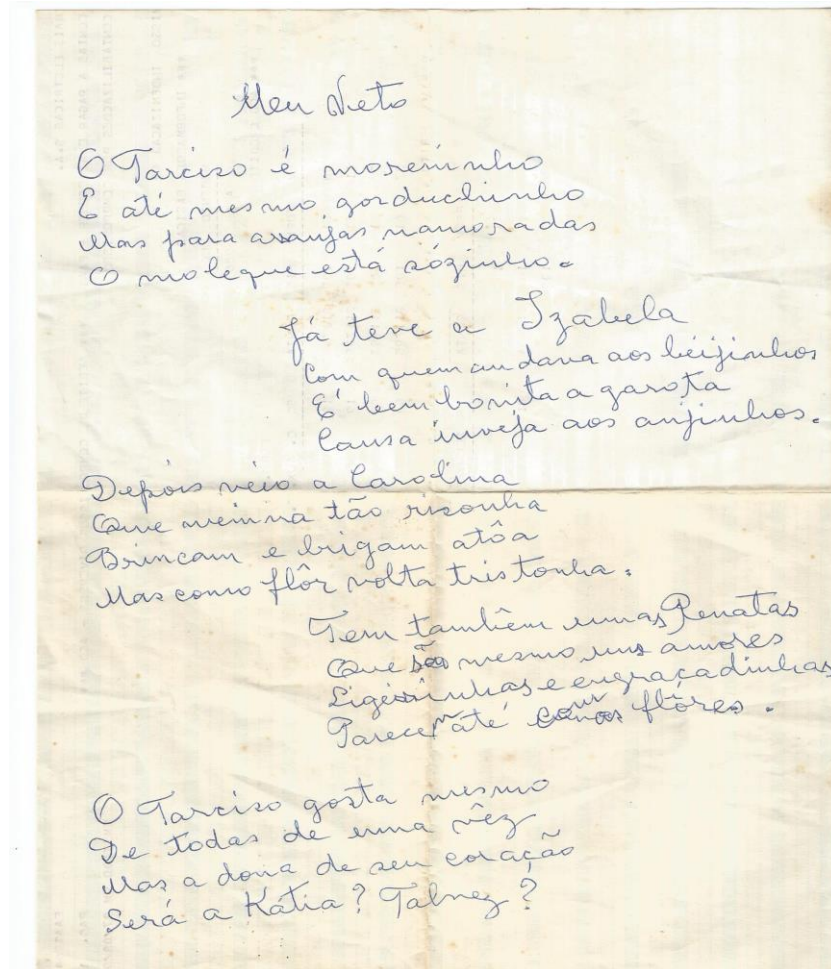 Meu Neto
O Tarciso é moreninho
E até mesmo gorduchinho
Mas para arranjas namoradas
O moleque está sózinho.
Já teve a Izabela
Com quem andava aos beijinhos
É bem bonita a garota
Causa inveja aos anjinhos.
Depois veio a Carolina
Que menina tão risonha
Brincam e brigam atôa
Mas como flôr volta tristonha.
Tem também umas Renatas
Que são mesmo uns amores
Ligeirinhas e engraçadinhas
Parecem até com flôres.
O Tarciso gosta mesmo
De todas de uma vêz
Mas a dona de seu coração
Será a Kátia? Talvez?